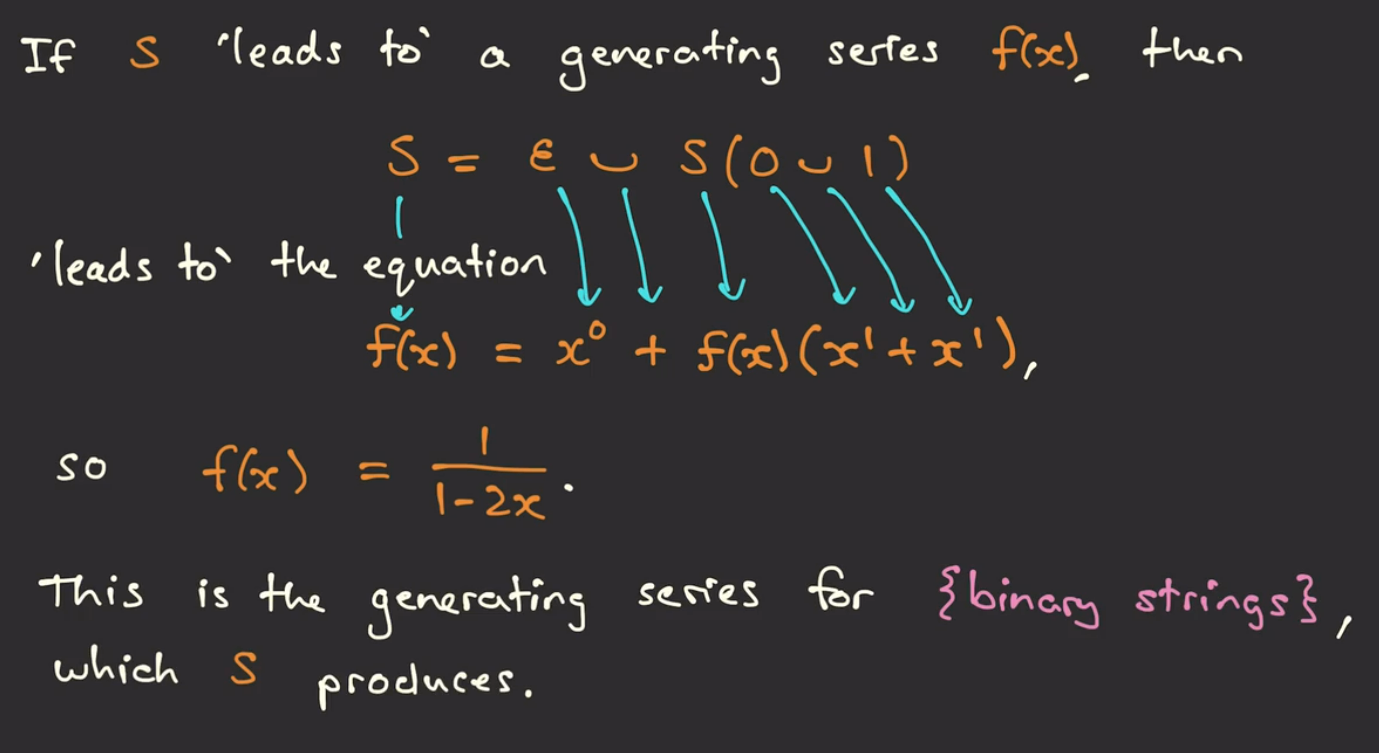 If S 'leads to' a generating series f(x), then
S = ε ∪ S(0 ∪ 1)
'leads to' the equation
f(x) = x⁰ + f(x)(x¹ + x¹),
so f(x) = 1/(1-2x).
This is the generating series for {binary strings},
which S produces.